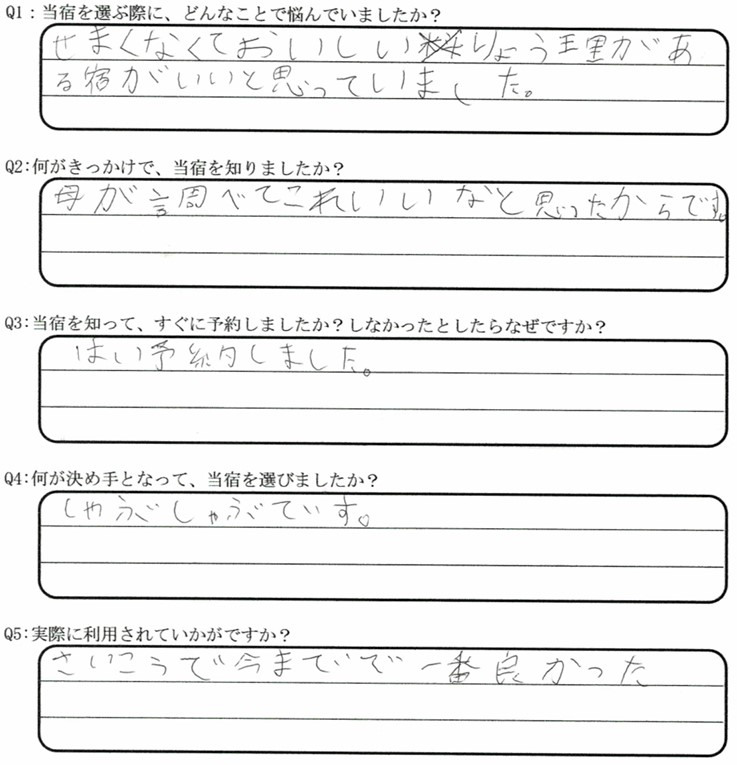 Q1：当宿を選ぶ際に、どんなことで悩んでいましたか？
せまくなくておいしいりょう理があ
る宿がいいと思っていました。
Q2：何がきっかけで、当宿を知りましたか？
母が調べてこれいいなと思ったからです。
Q3：当宿を知って、すぐに予約しましたか？しなかったとしたらなぜですか？
はい予約しました。
Q4：何が決め手となって、当宿を選びましたか？
しゃぶしゃぶていす。
Q5：実際に利用されていかがですか？
さいこうで今までで一番良かった